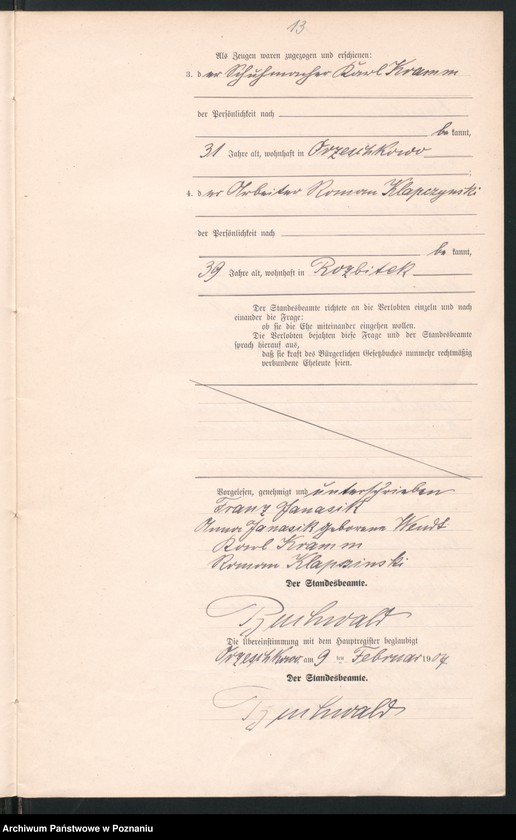 13.
Als Zeugen waren zugezogen und erschienen:
3. der Schuhmacher Karl Kramm
der Persönlichkeit nach
be kannt,
31 Jahre alt, wohnhaft in Orzeschkowo
;
4. der Arbeiter Roman Klapczynski
der Persönlichkeit nach
be kannt,
39 Jahre alt, wohnhaft in Rozbitek
Der Standesbeamte richtete an die Verlobten einzeln und nach
einander die Frage:
ob sie die Ehe miteinander eingehen wollen.
Die Verlobten bejahten diese Frage und der Standesbeamte
sprach hierauf aus,
daß sie kraft des Bürgerlichen Gesetzbuches nunmehr rechtmäßig
verbundene Eheleute seien.
Vorgelesen, genehmigt und unterschrieben
Franz Janasik
Anna Janasik geborene Wendt
Karl Kramm
Roman Klapzinski
Der Standesbeamte.
Buchwald
Die Übereinstimmung mit dem Hauptregister beglaubigt
Orzeschkowo am 9 ten Februar 1904.
Der Standesbeamte.
Buchwald
Archiwum Państwowe w Poznaniu